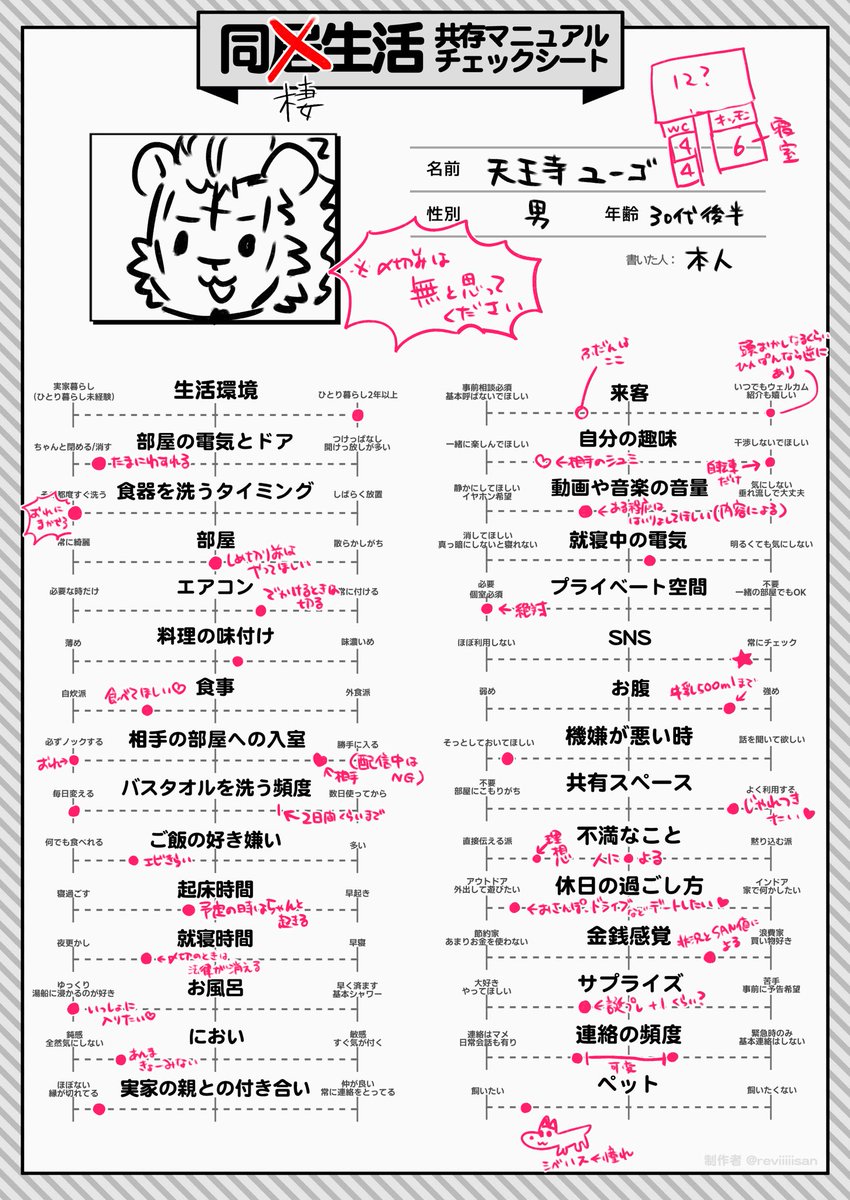 同居生活 共存マニュアル
チェックシート
棲
12?
WC
4
4
キッチン
6
寝室
名前 天王寺 ユーゴ
性別 男 年齢 30代後半
書いた人: 本人
※〆切前は
無と思って
ください
実家暮らし
(ひとり暮らし未経験)
生活環境
ひとり暮らし2年以上
ちゃんと閉める/消す
部屋の電気とドア
つけっぱなし
開けっ放しが多い
たまにわすれる
その都度すぐ洗う
食器を洗うタイミング
しばらく放置
おれに
まかせろ
常に綺麗
部屋
散らかしがち
しめきり前は
やってほしい
必要な時だけ
エアコン
常に付ける
でかけるときは
切る
薄め
料理の味付け
味濃いめ
自炊派
食事
外食派
食べてほしい♡
必ずノックする
相手の部屋への入室
勝手に入る
おれ→
↑相手
(配信中は
NG)
毎日変える
バスタオルを洗う頻度
数日使ってから
←2日向くらいまで
何でも食べれる
ご飯の好き嫌い
多い
エビきらい
寝過ごす
起床時間
早起き
予定の時はちゃんと
起きる
夜更かし
就寝時間
早寝
←〆切のときは
法律が消える
ゆっくり
湯船に浸かるのが好き
お風呂
早く済ます
基本シャワー
いっしょに
入りたい♡
鈍感
全然気にしない
におい
敏感
すぐ気が付く
あんま
きょーみない
ほぼない
縁が切れてる
実家の親との付き合い
仲が良い
常に連絡をとってる
ふだんは
ここ
頭おかしなるくらい
ひんぱんなら逆に
あり
事前相談必須
基本呼ばないでほしい
来客
いつでもウェルカム
紹介も嬉しい
一緒に楽しんでほしい
自分の趣味
干渉しないでほしい
♡←相手のシュミ
自転車→
だけ
静かにしてほしい
イヤホン希望
動画や音楽の音量
気にしない
垂れ流しで大丈夫
←ある程度は
はいりょしてほしい(内容による)
消してほしい
真っ暗にしないと寝れない
就寝中の電気
明るくても気にしない
必要
個室必須
プライベート空間
不要
一緒の部屋でもOK
←絶対
ほぼ利用しない
SNS
常にチェック
弱め
お腹
強め
牛乳500mlまで
そっとしておいてほしい
機嫌が悪い時
話を聞いて欲しい
不要
部屋にこもりがち
共有スペース
よく利用する
じゃれつき
たい♥
直接伝える派
不満なこと
黙り込む派
理想
人に
よる
アウトドア
外出して遊びたい
休日の過ごし方
インドア
家で何かしたい
←おさんぽ、ドライブなどデートしたい♥
節約家
あまりお金を使わない
金銭感覚
浪費家
買い物好き
状況とSAN値に
よる
大好き
やってほしい
サプライズ
苦手
事前に予告希望
←誕プレ+1くらい?
連絡はマメ
日常会話も有り
連絡の頻度
緊急時のみ
基本連絡はしない
可変
飼いたい
ペット
飼いたくない
シベハス←憧れ
制作者 @reviiiiisan